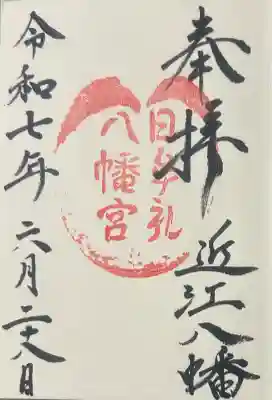 奉拝
近江八幡
日牟礼
八幡宮
令和七年六月二十八日